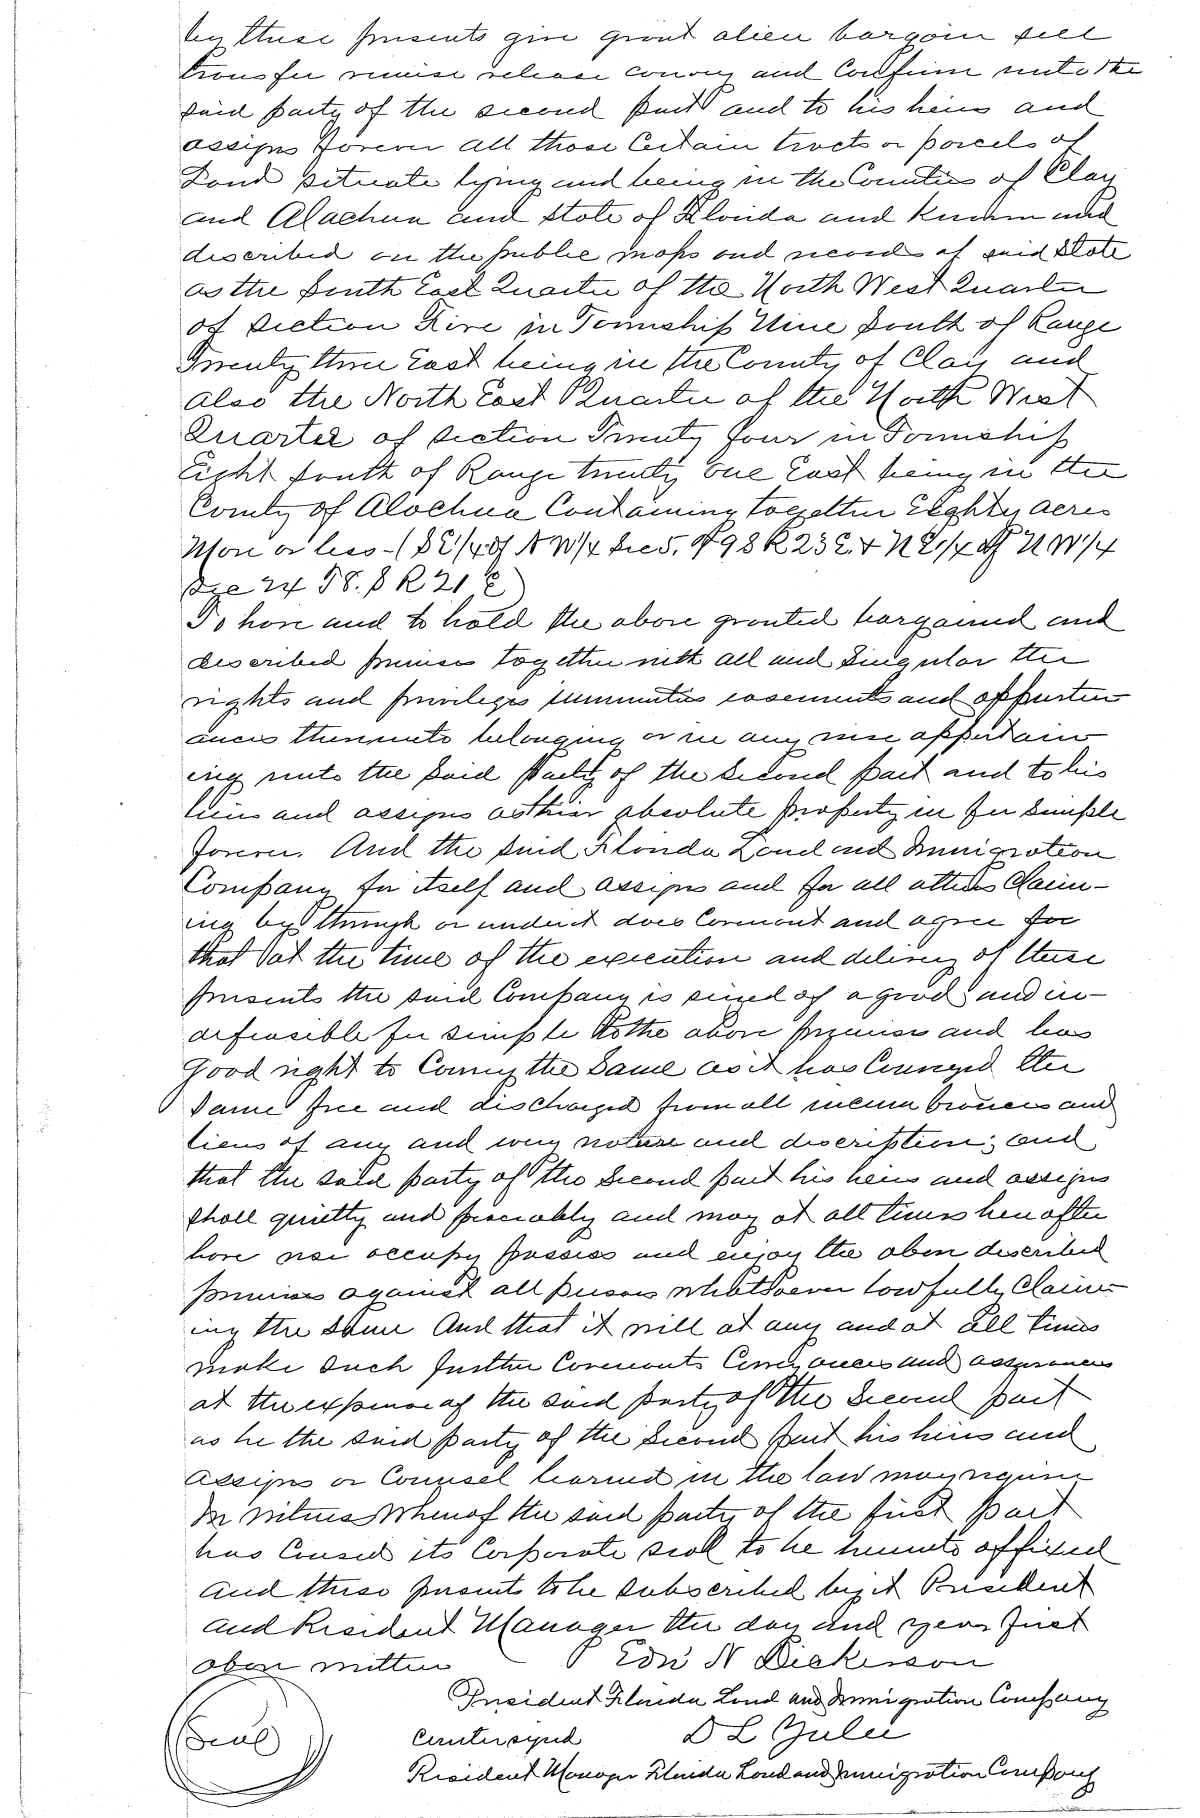 by these presents give grant alien bargain sell
transfer remise release convey and Confirm unto the
said party of the second part and to his heirs and
assigns forever all those Certain tracts or parcels of
Land situate lying and being in the Counties of Clay
and Alachua and State of Florida and Known and
described on the public maps and records of said State
as the South East Quarter of the North West Quarter
of Section Five in Township Nine South of Range
Twenty three East being in the County of Clay and
also the North East Quarter of the North West
Quarter of Section Twenty four in Township
Eight South of Range twenty one East being in the
County of Alachua Containing together Eighty acres
More or less - (SE 1/4 of NW 1/4 Sec 5. T 9 S R 23 E. & NE 1/4 of NW 1/4
Sec 24 T 8. S R 21 E)
To have and to hold the above granted bargained and
described premises together with all and Singular the
rights and privileges immunities easements and appurten
ances thereunto belonging or in any wise appertain
ing unto the said party of the Second part and to his
heirs and assigns as their absolute property in fee Simple
forever. And the said Florida Land and Immigration
Company for itself and assigns and for all others Claim-
ing by through or under it does Covenant and agree
that at the time of the execution and delivery of these
presents the said Company is seized of a good and in-
defeasible fee simple to the above premises and has
Good right to Convey the Same as it has Conveyed the
Same free and discharged from all incumbrances and
liens of any and every nature and description; and
that the said party of the Second part his heirs and assigns
shall quietly and peaceably and may at all times hereafter
have use occupy possess and enjoy the above described
premises against all persons whatsoever lawfully Claim-
ing the same And that it will at any and at all times
make such further Covenants Conveyances and assurances
at the expense of the said party of the Second part
as he the said party of the Second part his heirs and
assigns or Counsel learned in the law may require
In witness Whereof the said party of the first part
has Caused its Corporate seal to be hereunto affixed
and these presents to be subscribed by it President
and Resident Manager the day and year first
above written Edw N Dickerson
President Florida Land and Immigration Company
(Seal) Countersigned D L Yulee
Resident Manager Florida Land and Immigration Company